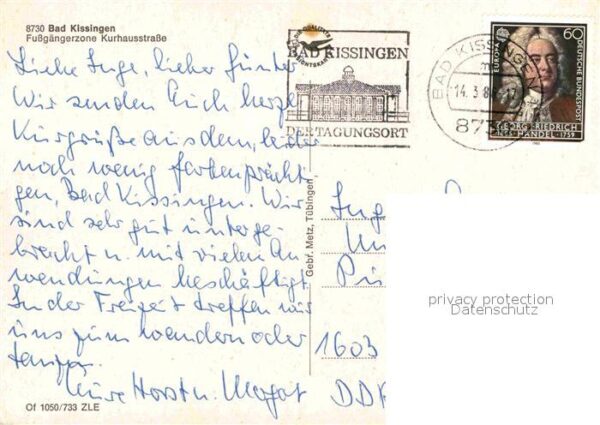 8730 Bad Kissingen
Fußgängerzone Kurhausstraße
Liebe Inge, lieber Günter
Wir senden Euch herzl.
Kurgrüße aus dem, leider
noch wenig farbenprächti-
gen, Bad Kissingen. Wir
sind sehr gut unterge-
bracht u. mit vielen An
wendungen beschäftigt.
In der Freizeit treffen wir
uns zum wandern oder
tanzen.
Eure Horst u. Margot
Of 1050/733 ZLE
Gebr. Metz, Tübingen
BAD KISSINGEN
DER TAGUNGSORT
BAD KISSINGEN
14. 3. 8
873
EUROPA
60
DEUTSCHE BUNDESPOST
GEORG FRIEDRICH
HÄNDEL · 1759
Ing
1603
DDR
privacy protection
Datenschutz